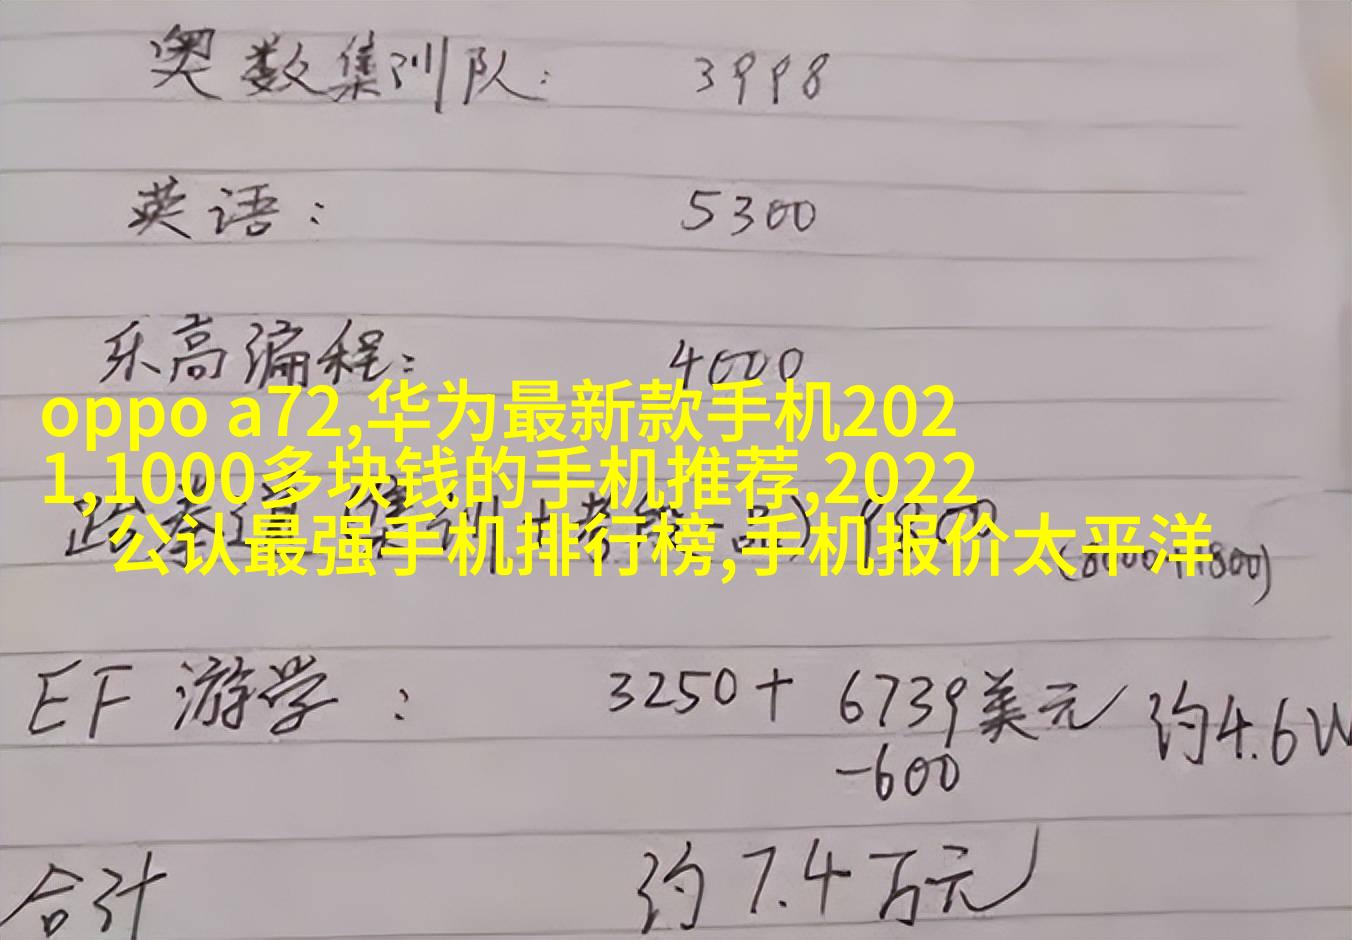 奥数集训队: 3998
英语: 5300
乐高编程: 4000
oppo a72,华为最新款手机202
1,1000多块钱的手机推荐,2022
公认最强手机排行榜,手机报价太平洋
跆拳道
EF 游学: 3250+ 6739美元 约4.6W
-600
合计 约7.4万元